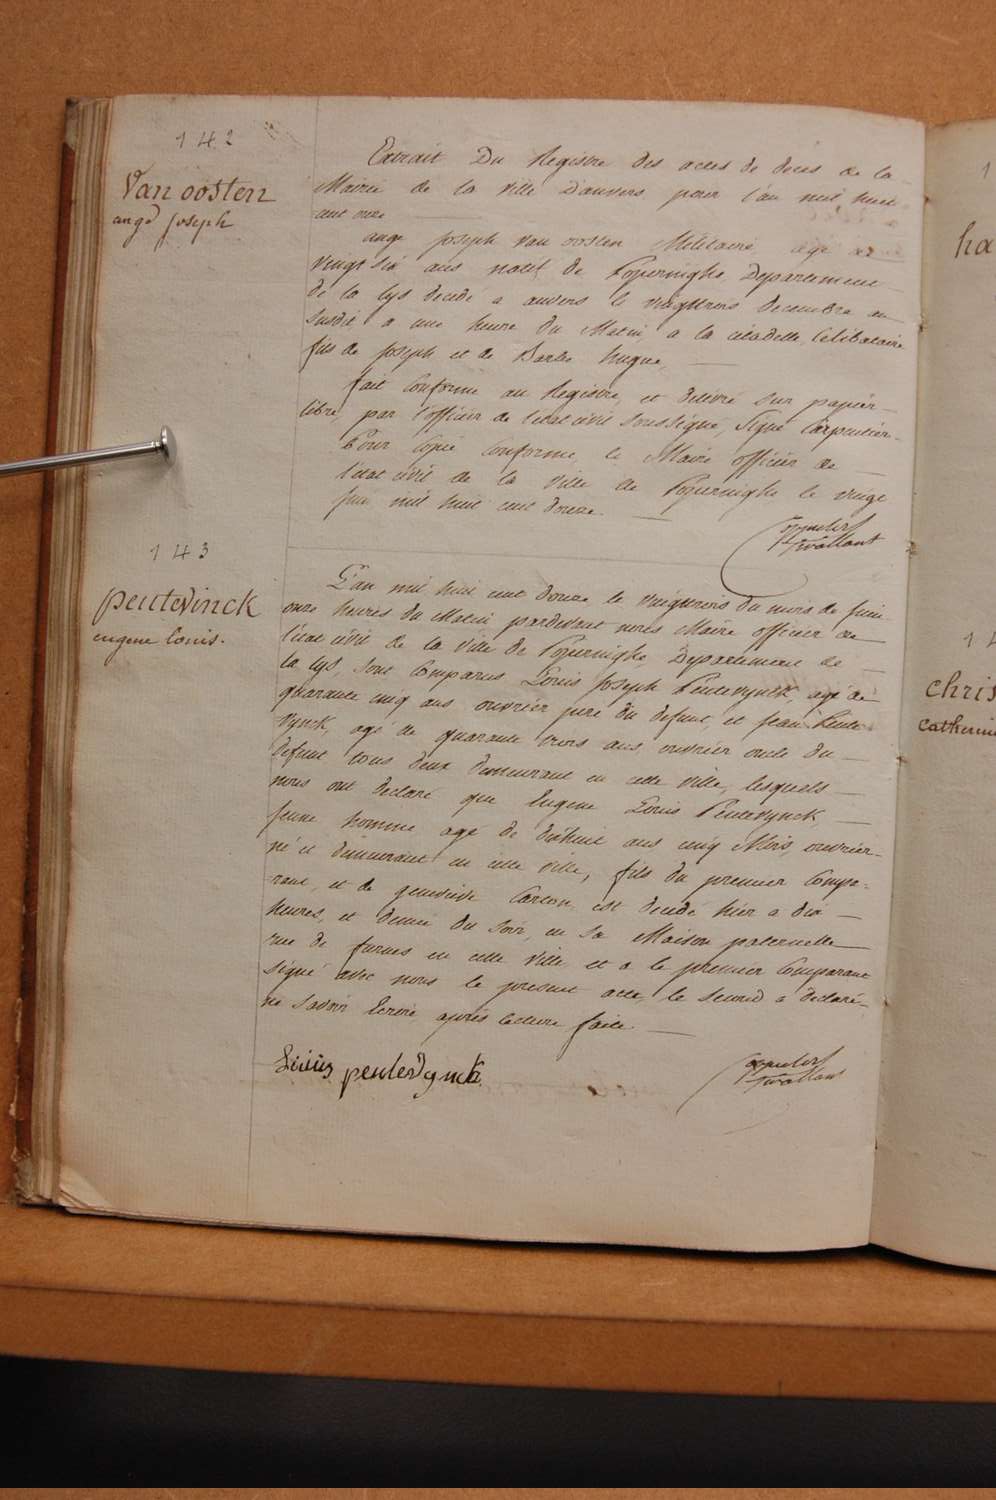 142
Van oosten
ange Joseph
Extrait Du Registre des actes de deces de la
Mairie de la Ville D'anvers pour l'an mil huit
cent onze
ange Joseph Van oosten Militaire agé de
vingt six ans natif de Poperinghe Departement
de la Lys decedé a anvers le vingttrois decembre an
susdit a une heure du Matin, a la citadelle, Celibataire
fils de Joseph et de Barbe hugue,
fait Conforme au Registre, et delivré sur papier
libre, par l'officier de l'etat civil soussigne, Signé Carpentier
Pour Copie Conforme, le Maire officier de
l'etat civil de la Ville de Poperinghe le vingt
juin mil huit cent douze.
143
peutevinck
eugene louis.
L'an mil huit cent douze, le vingttrois du mois de juin
onze heures du Matin pardevant nous Maire officier de
l'etat civil de la Ville de Poperinghe Departement de
la Lys, sont Comparus Louis Joseph Peutevynck, agé de
quarante cinq ans ouvrier pere du defunt, et jean Peute
vynck, agé de quarante trois ans, ouvrier oncle du
defunt tous deux demeurant en cette Ville, lesquels
nous ont declaré que Eugene Louis Peutevynck,
jeune homme agé de dixhuit ans cinq Mois, ouvrier
né et demeurant en cette ville, fils du premier Compa-
rant, et de genevieve Carton est decedé hier a dix
heures, et demie du soir, en sa Maison paternelle
rue de furnes en cette Ville, et a le premier Comparant
signé avec nous le present acte, le second a declaré
ne savoir Ecrire, après lecture faite
Louis peutevynck
142
ha
14
chris
catherine